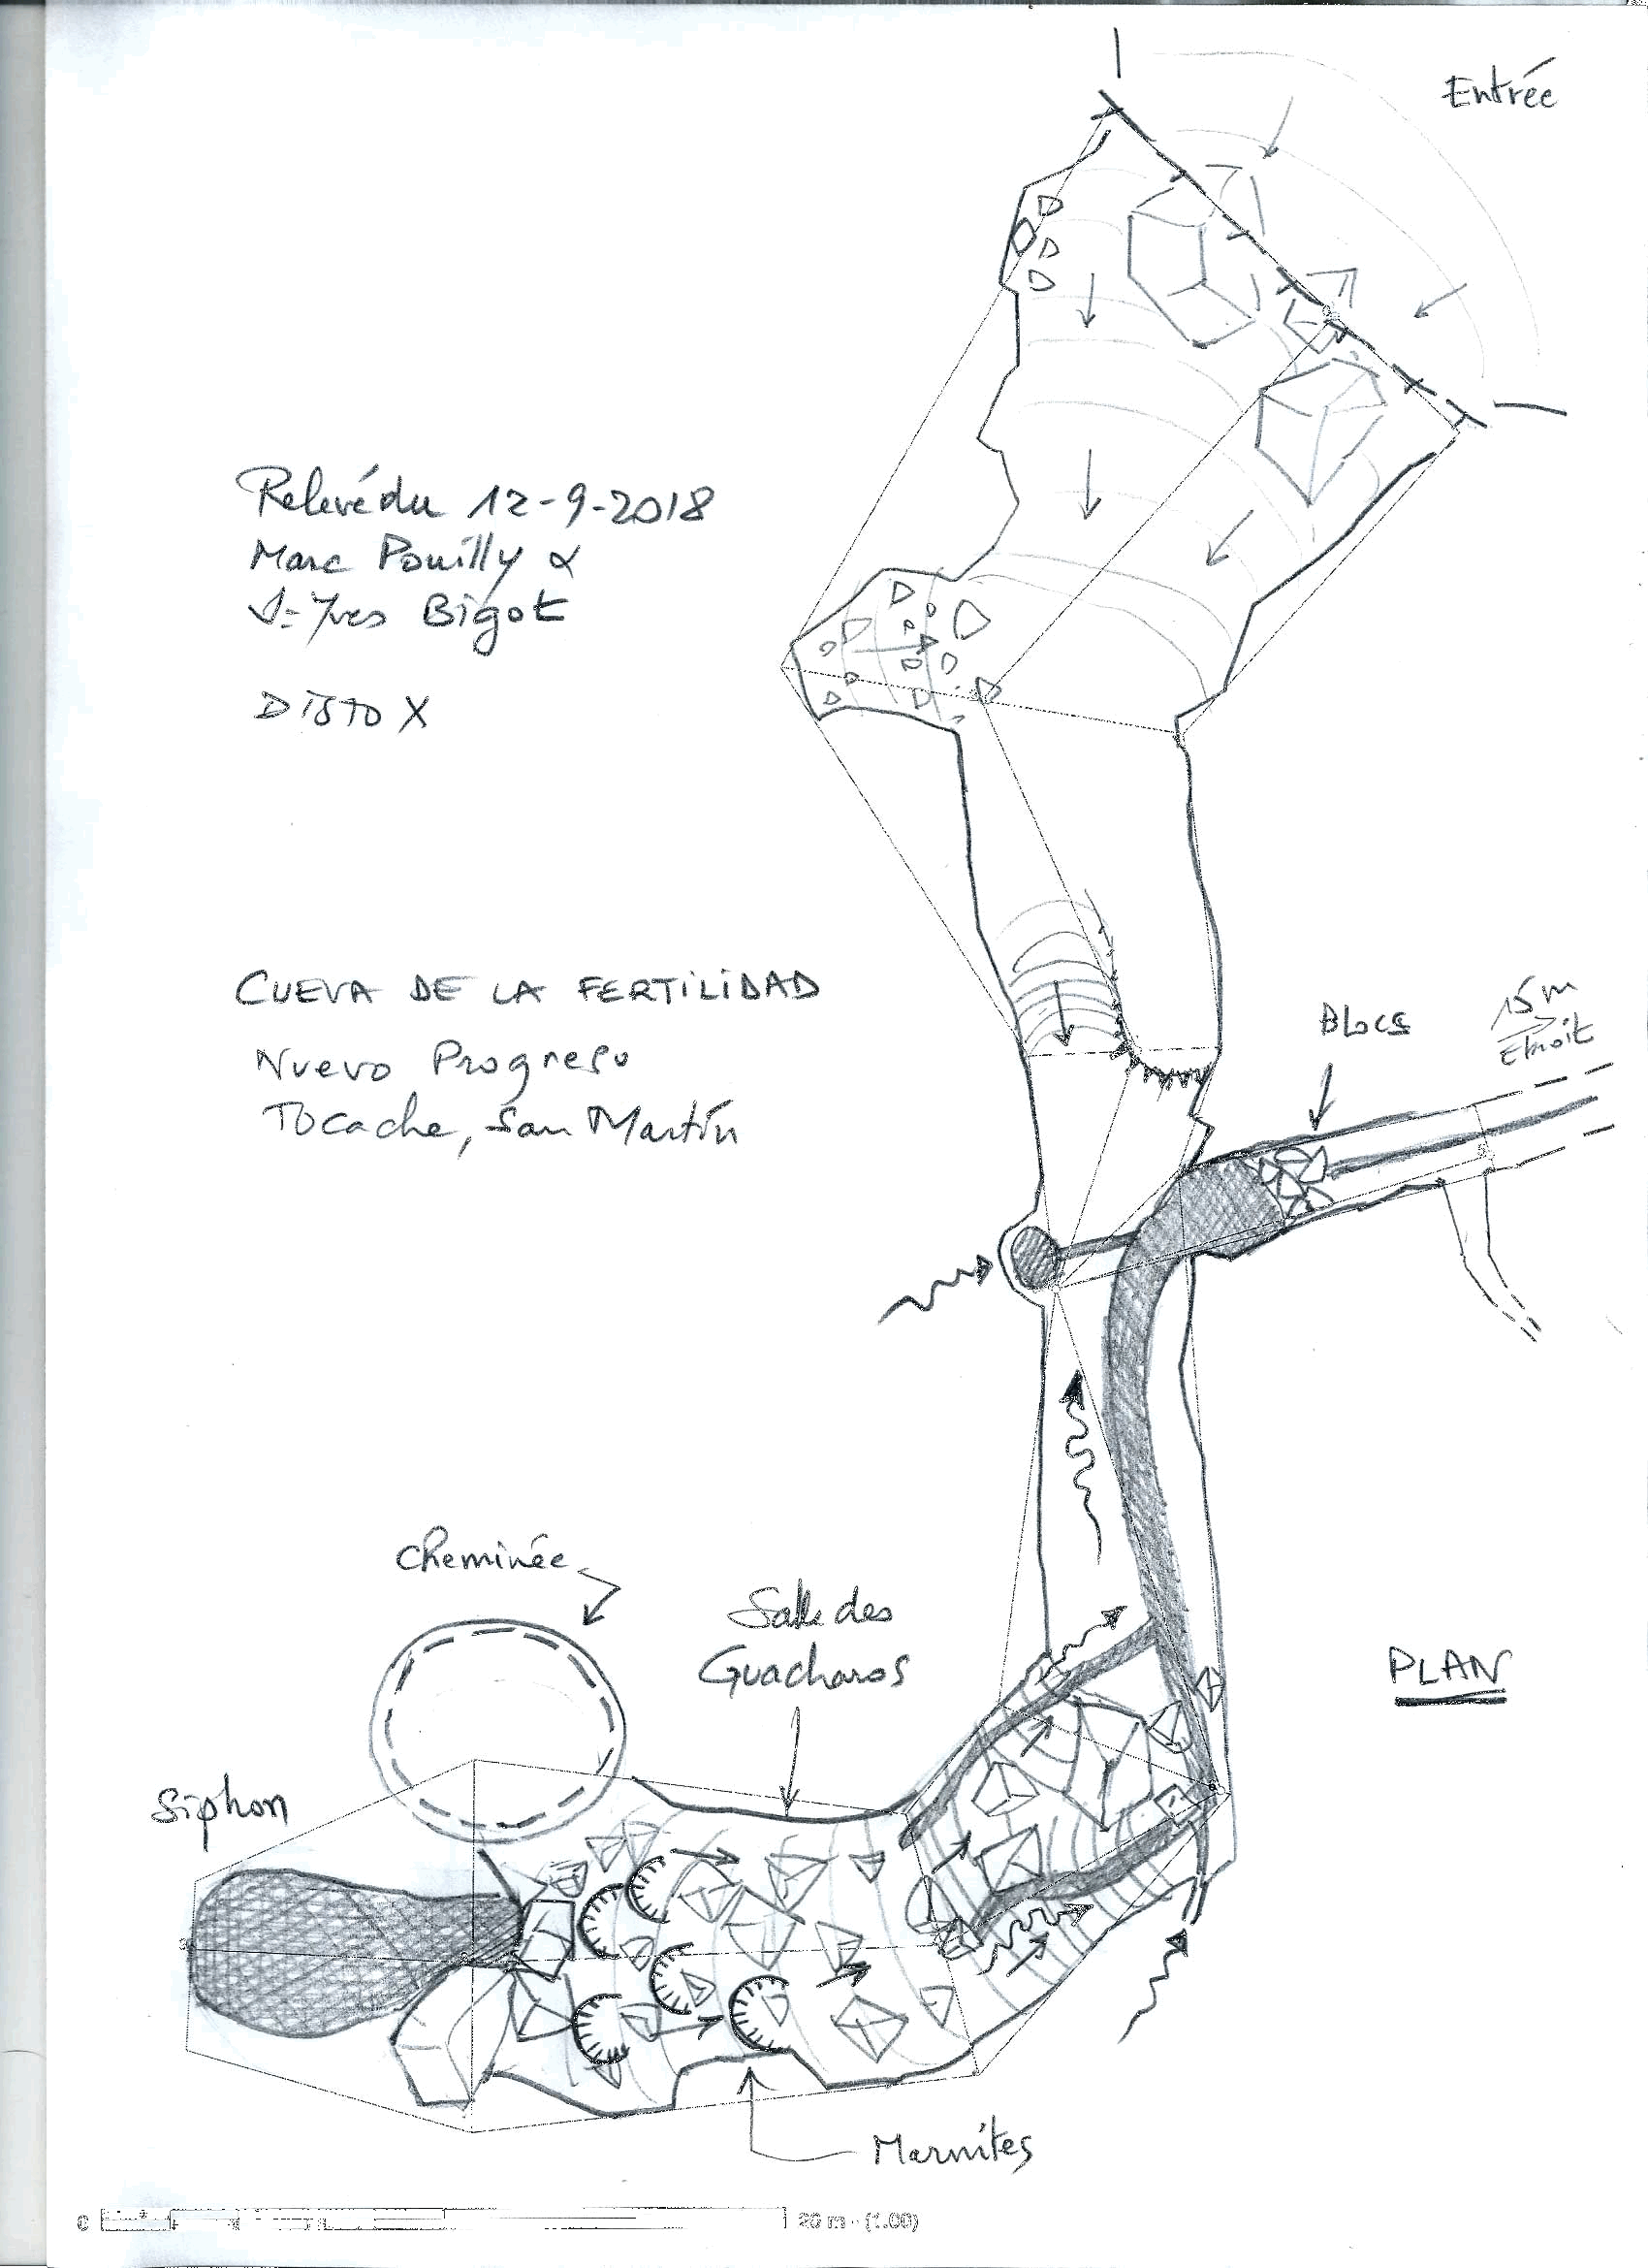 Entrée
Relevé du 12-9-2018
Marc Pouilly &
J-Yves Bigot
DISTO X
CUEVA DE LA FERTILIDAD
Nuevo Progreso
Tocache, San Martín
Blocs
15 m
Etroit
Cheminée
Salle des
Guacharos
PLAN
Siphon
Marmites
0
20 m - (1.00)